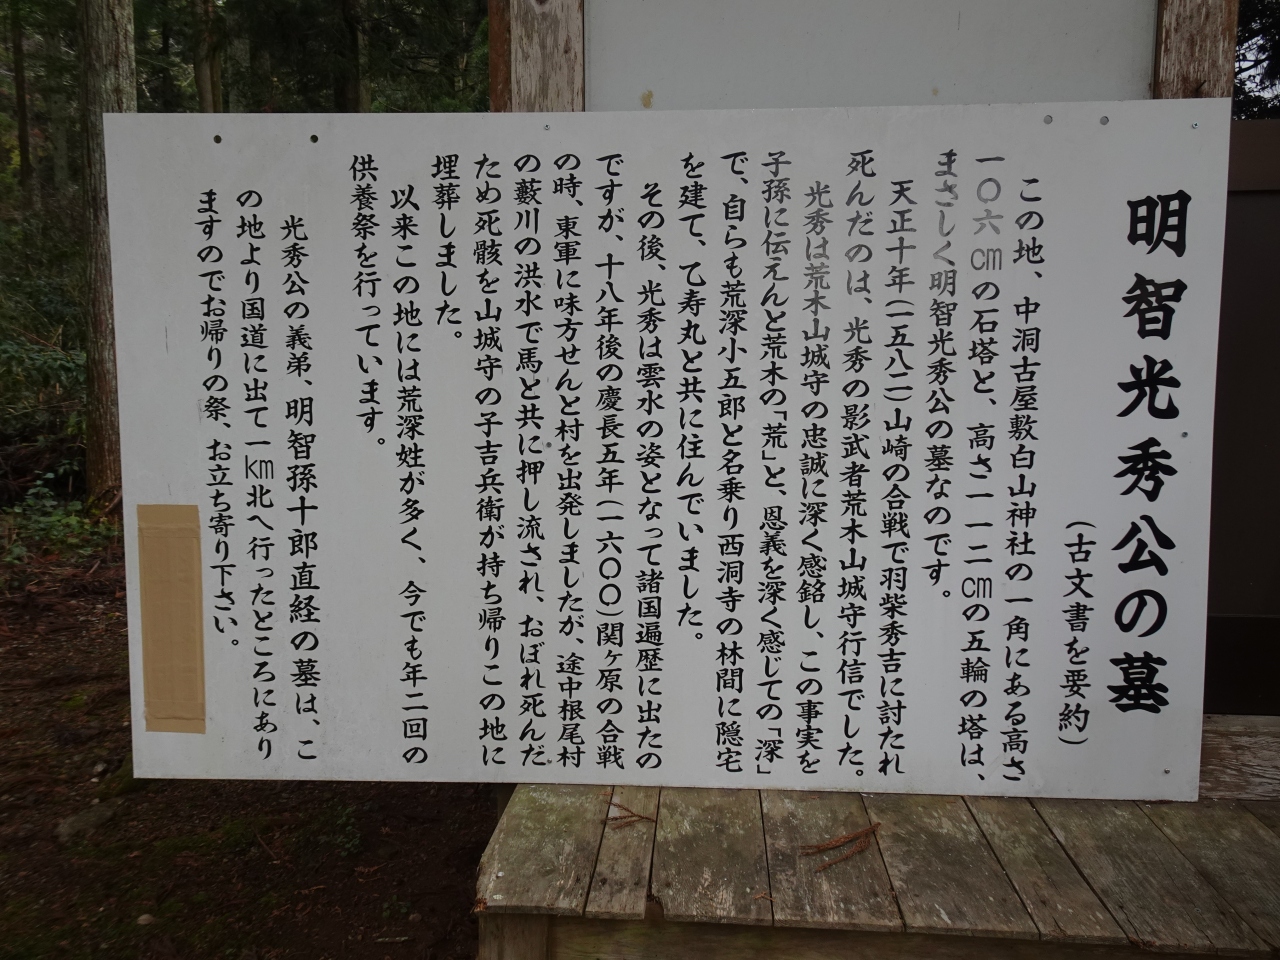 明智光秀公の墓
(古文書を要約)
この地、中洞古屋敷白山神社の一角にある高さ
一〇六cmの石塔と、高さ一一二cmの五輪の塔は、
まさしく明智光秀公の墓なのです。
天正十年(一五八二)山崎の合戦で羽柴秀吉に討たれ
死んだのは、光秀の影武者荒木山城守行信でした。
光秀は荒木山城守の忠誠に深く感銘し、この事実を
子孫に伝えんと荒木の「荒」と、恩義を深く感じての「深」
で、自らも荒深小五郎と名乗り西洞寺の林間に隠宅
を建て、乙寿丸と共に住んでいました。
その後、光秀は雲水の姿となって諸国遍歴に出たの
ですが、十八年後の慶長五年(一六〇〇)関ヶ原の合戦
の時、東軍に味方せんと村を出発しましたが、途中根尾村
の藪川の洪水で馬と共に押し流され、おぼれ死んだ
ため死骸を山城守の子吉兵衛が持ち帰りこの地に
埋葬しました。
以来この地には荒深姓が多く、今でも年二回の
供養祭を行っています。
光秀公の義弟、明智孫十郎直経の墓は、こ
の地より国道に出て一km北へ行ったところにあり
ますのでお帰りの祭、お立ち寄り下さい。